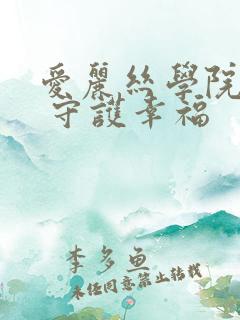 愛麗絲學院
守護幸福
李多魚
未經同意禁止轉載